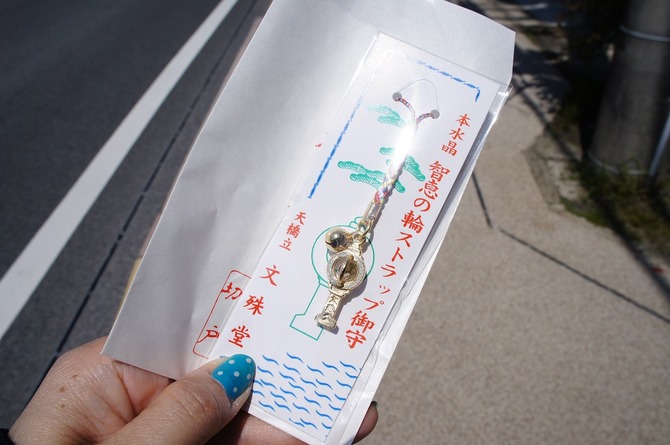 本水晶
智恵の輪ストラップ御守
天橋立
文殊堂
切戸